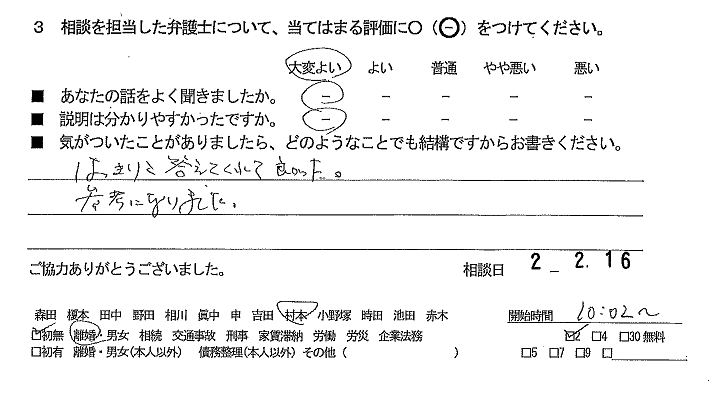 3 相談を担当した弁護士について、当てはまる評価に○（⊖）をつけてください。
大変よい よい 普通 やや悪い 悪い
■ あなたの話をよく聞きましたか。 － － － － －
■ 説明は分かりやすかったですか。 － － － － －
■ 気がついたことがありましたら、どのようなことでも結構ですからお書きください。
はっきりと答えてくれて良かった。
参考になりました。
ご協力ありがとうございました。 相談日 2 － 2. 16
森田 榎本 田中 野田 相川 眞中 申 吉田 村本 小野塚 時田 池田 赤木 開始時間 10:02～
☑初無 離婚・男女 相続 交通事故 刑事 家賃滞納 労働 労災 企業法務 ☑2 □4 □30無料
□初有 離婚・男女(本人以外) 債務整理(本人以外) その他（ ） □5 □7 □9 □